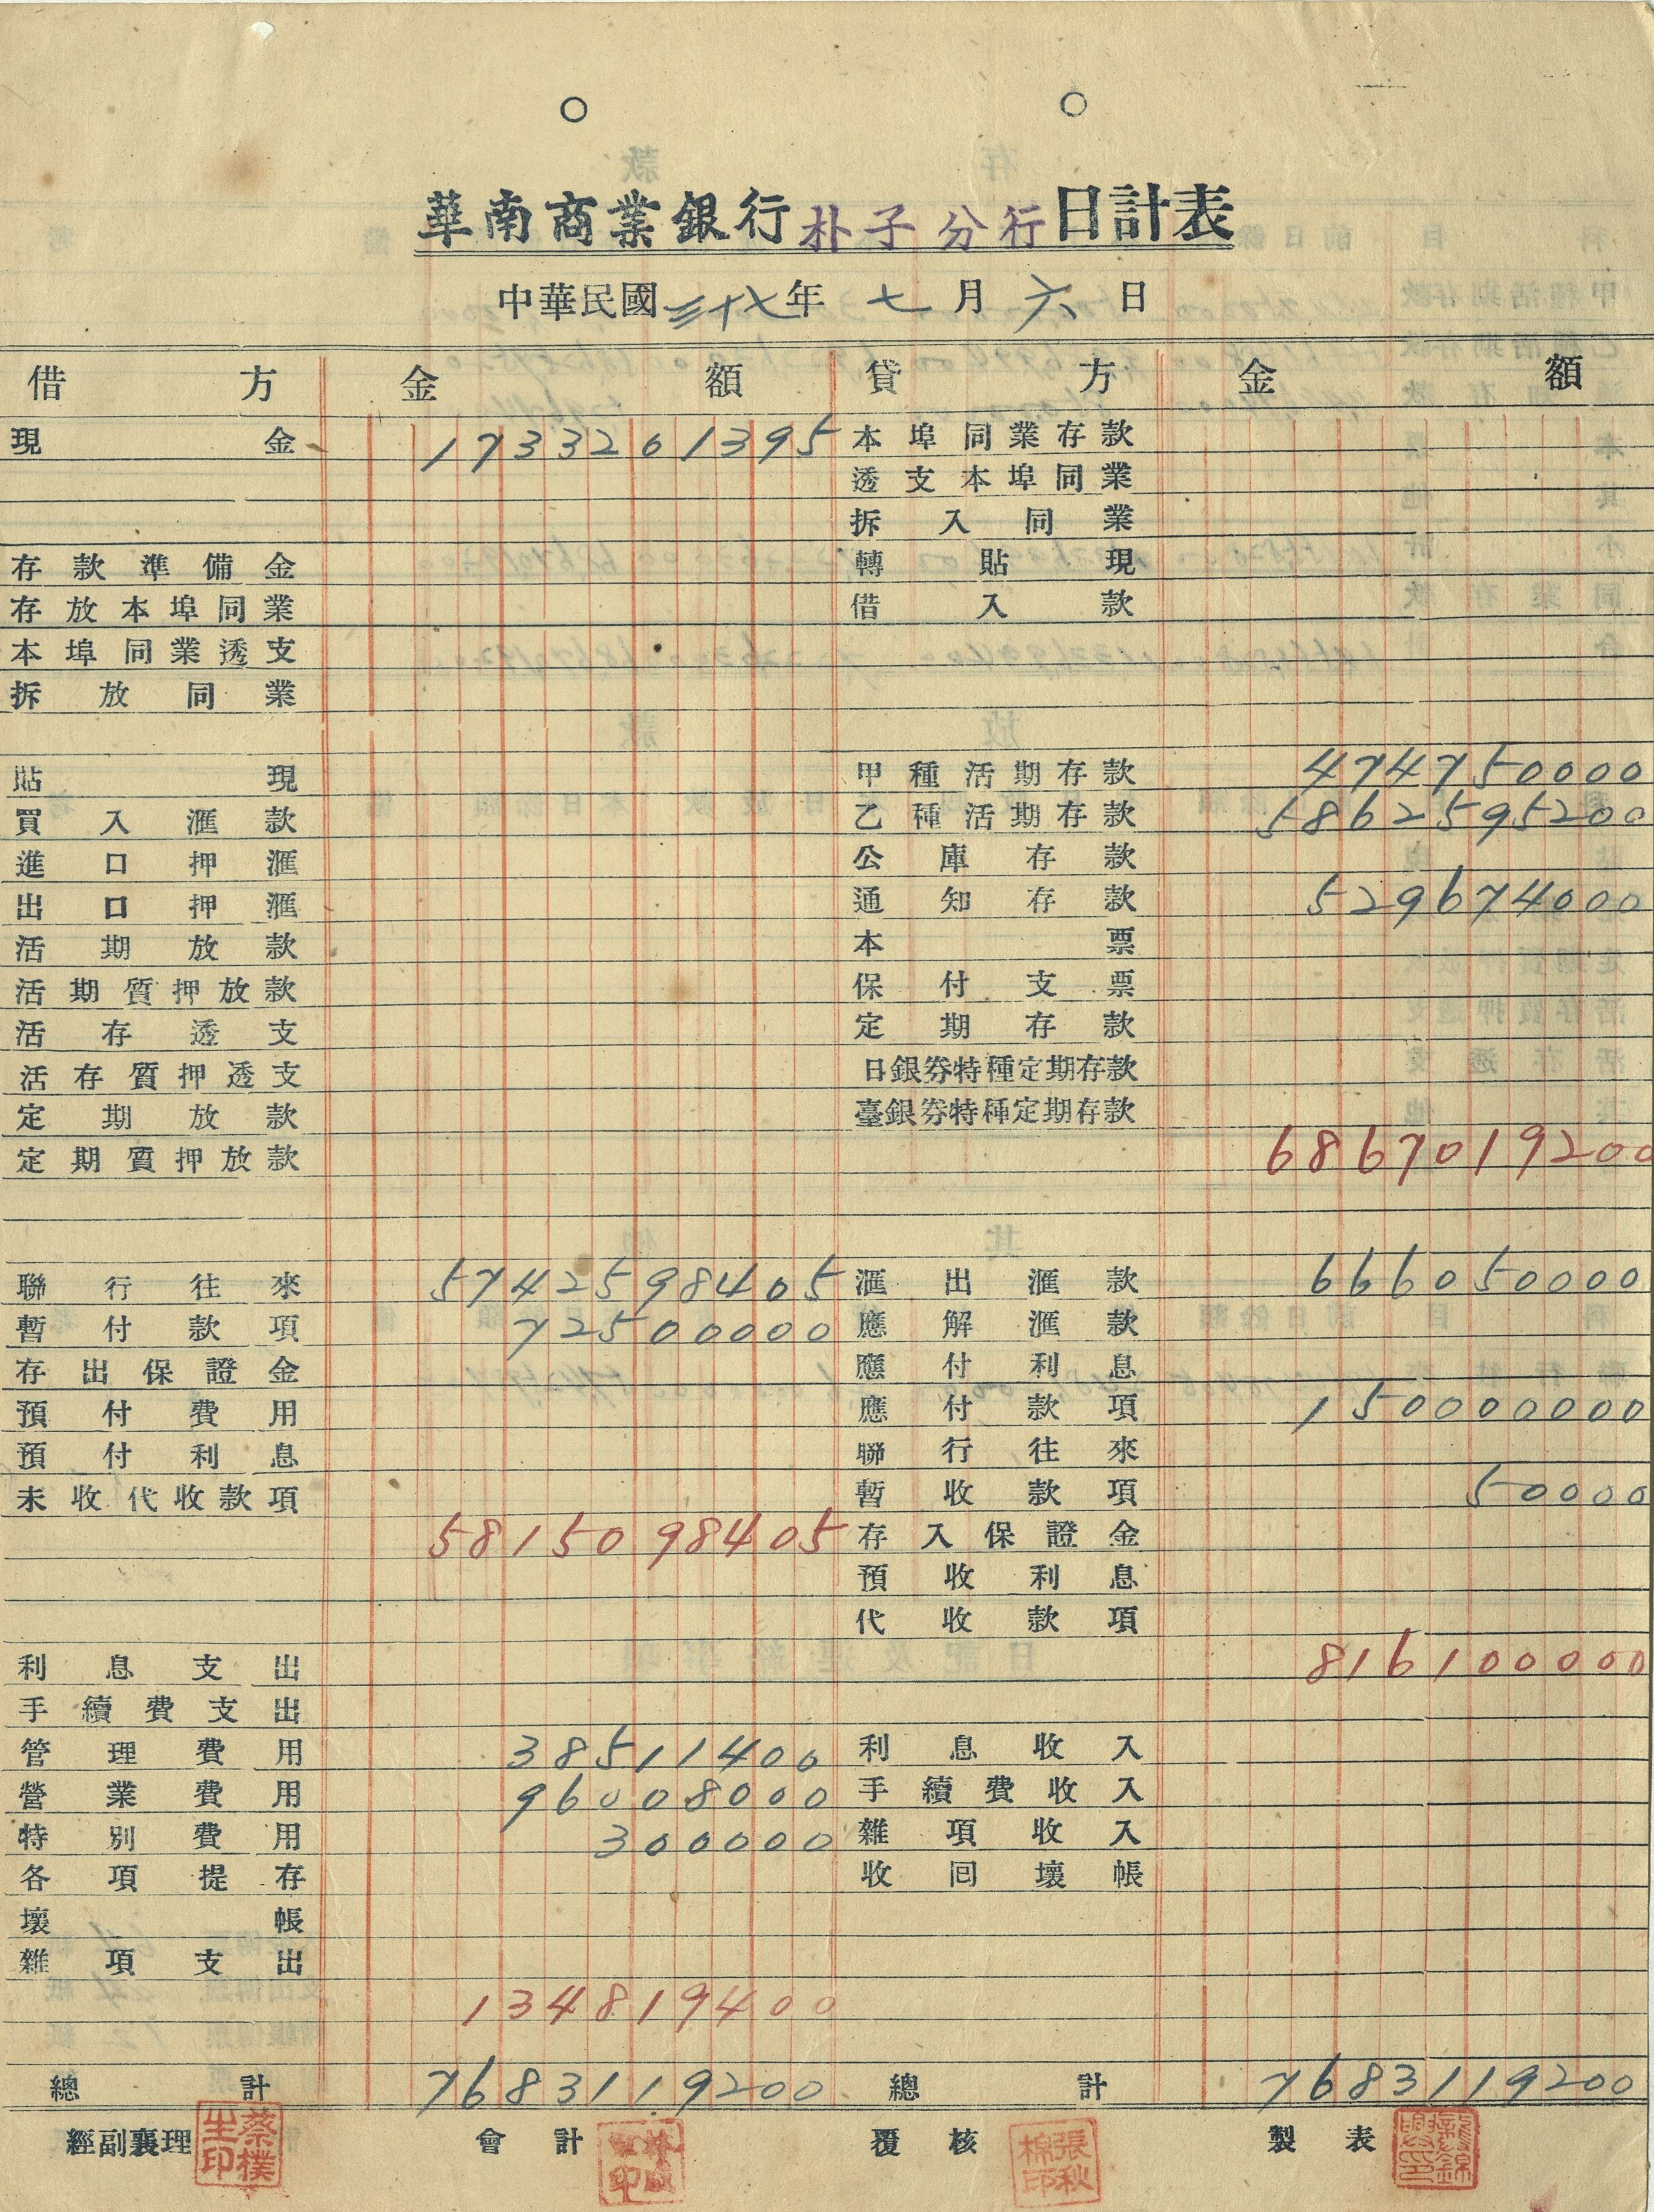 華南商業銀行朴子分行日計表
中華民國三十七年七月六日
借方 金額 貸方 金額
現金 1733201395 本埠同業存款
透支本埠同業
拆入同業
存款準備金 轉貼現
存放本埠同業 借入款
本埠同業透支
拆放同業
貼現 甲種活期存款 474750000
買入滙款 乙種活期存款 5862595200
進口押滙 公庫存款
出口押滙 通知存款 529674000
活期放款 本票
活期質押放款 保付支票
活存透支 定期存款
活存質押透支 日銀券特種定期存款
定期放款 臺銀券特種定期存款
定期質押放款 6867019200
聯行往來 5742598405 滙出滙款 666050000
暫付款項 72500000 應解滙款
存出保證金 應付利息
預付費用 應付款項 150000000
預付利息 聯行往來
未收代收款項 暫收款項 50000
5815098405 存入保證金
預收利息
代收款項
利息支出 816100000
手續費支出
管理費用 38511400 利息收入
營業費用 96008000 手續費收入
特別費用 300000 雜項收入
各項提存 收回壞帳
壞帳
雜項支出
134819400
總計 7683119200 總計 7683119200
經副襄理 蔡樸生印 會計 覆核 張秋棉印 製表